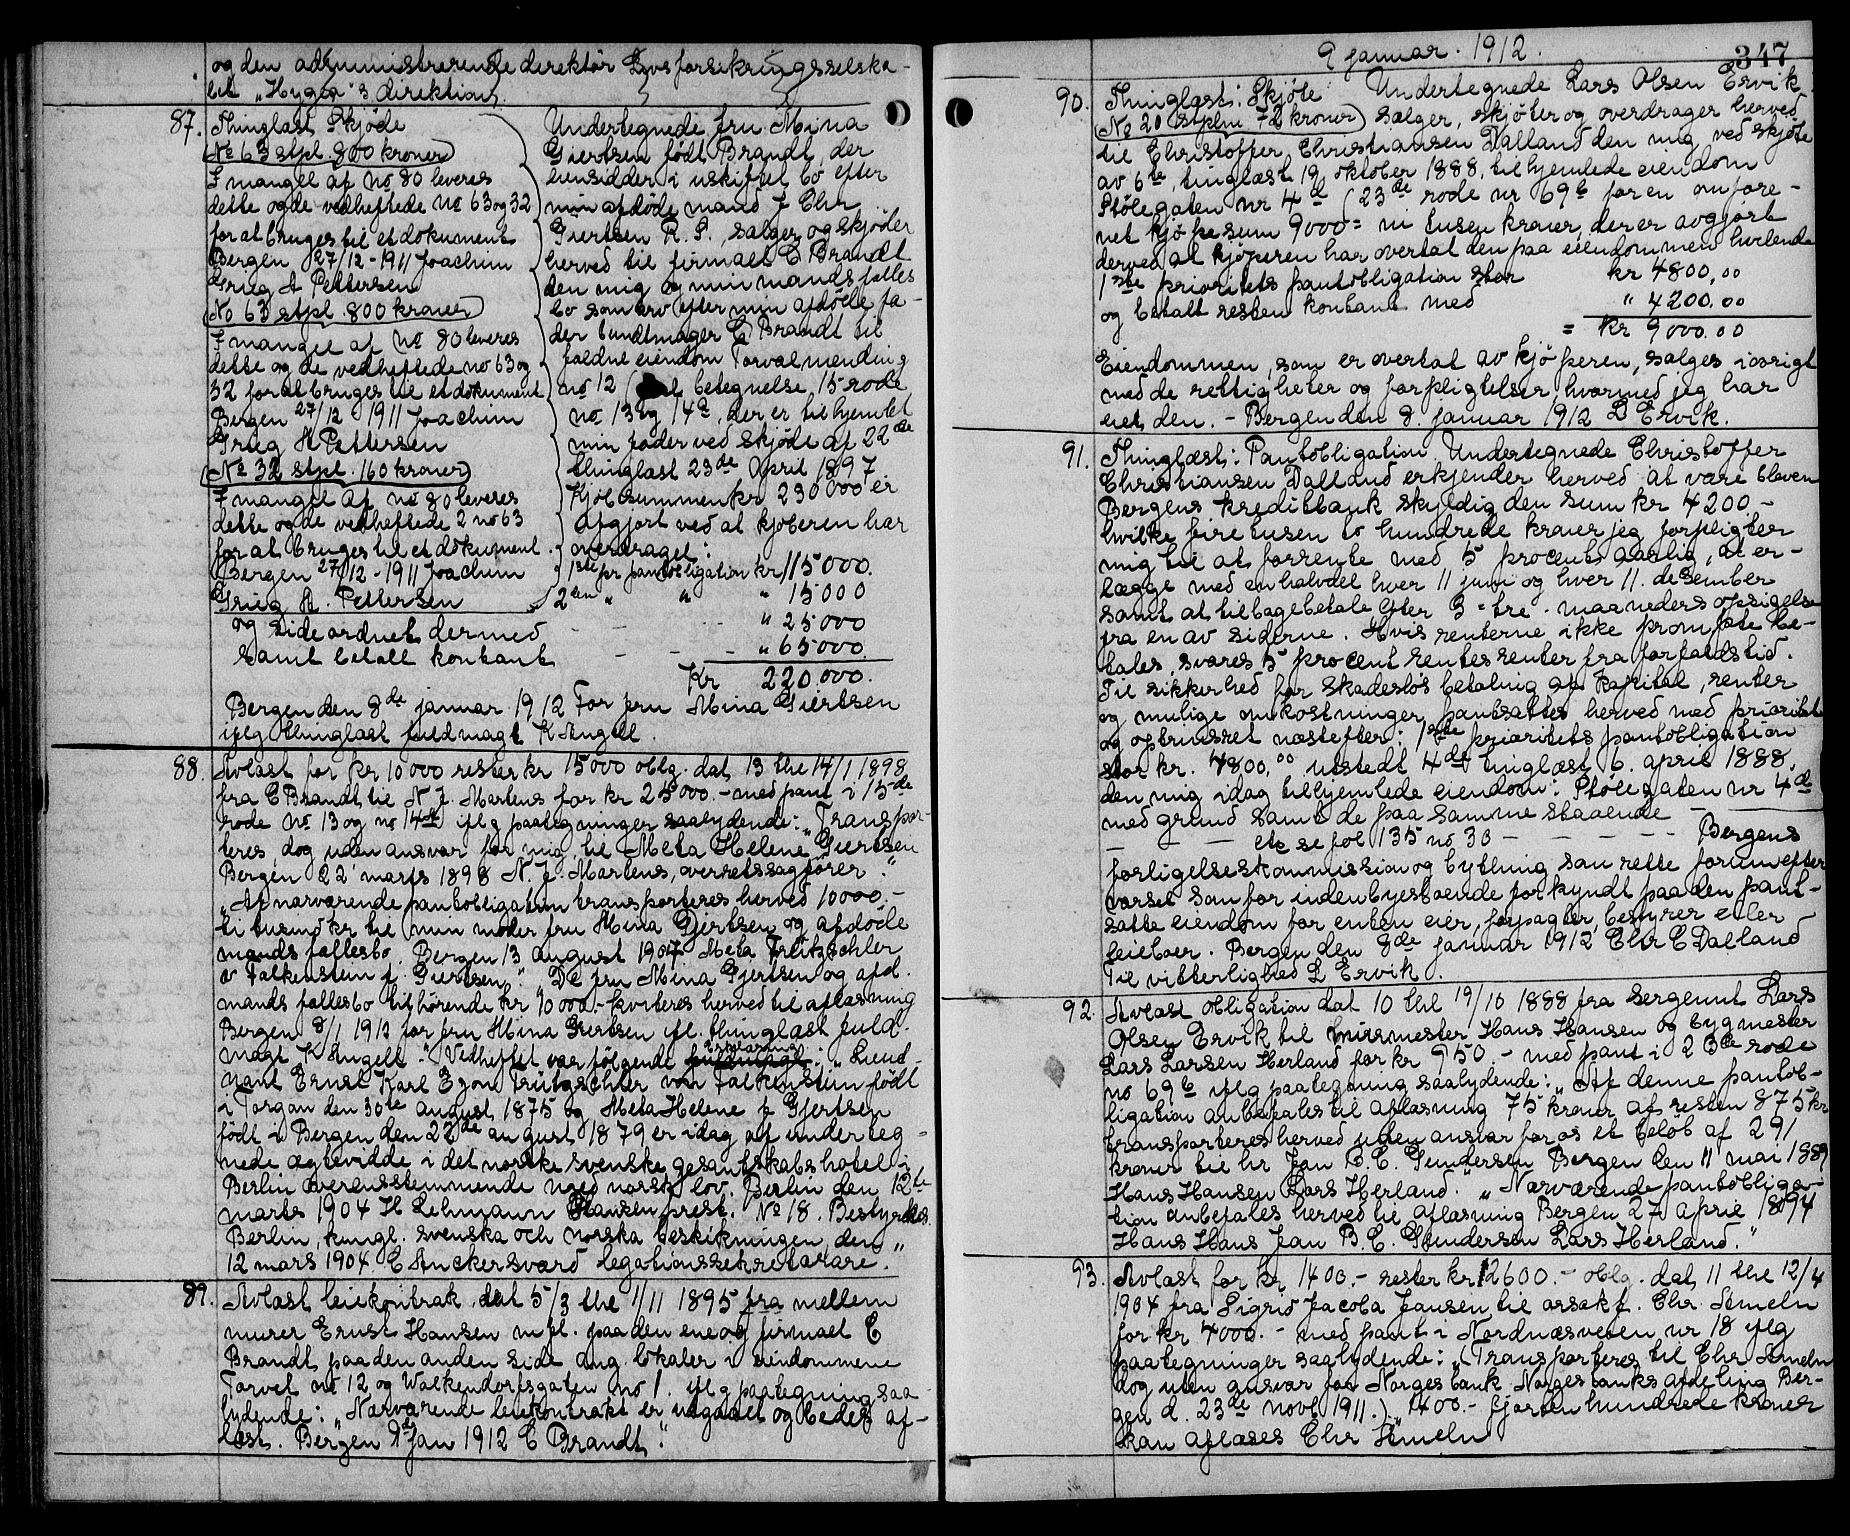 og den administrerende direktör Livsforsikringsselska-
bet "Hygea"s direktion.
87. Thinglæst Skjöde
No 63 stpl 800 kroner
I mangel af no 80 leveres
dette og de vedheftede no 63 og 32
for at bruges til et dokument
Bergen 27/12-1911 Joachim
Grieg A Pettersen
No 63 stpl 800 kroner
I mangel af no 80 leveres
dette og de vedheftede no 63 og
32 for at bruges til et dokument
Bergen 27/12 1911 Joachim
Grieg A Pettersen
No 32 stpl. 160 kroner
I mangel af no 80 leveres
dette og de vedheftede 2 no 63
for at bruges til et dokument
Bergen 27/12-1911 Joachim
Grieg A. Pettersen
Undertegnede fru Mina
Giertsen född Brandt, der
hensidder i uskiftet bo efter
min afdöde mand J Chr
Giertsen R. S., sælger og skjöder
herved til firmaet C Brandt
den mig og min mands fælles
bo som arv efter min afdöde fa-
der bundtmager C Brandt til
faldne eiendom Torvalmending
no 12 ( betegnelse, 15 rode
no 13 og 14a, der er tilhjemlet
min fader ved skjöde af 22de
thinglæst 23de April 1897
Kjöbesummen kr 230000 er
afgjort ved at kjöberen har
overdraget:
1ste pr pantobligation kr 115000.
2den " " " 15000
og sideordnet dermed - - - " 25000
samt betalt kontant - - - " 65000
Kr 220.000.
Bergen den 8de januar 1912 For fru Mina Giertsen
iflg thinglæst fuldmagt K Angell.
88. Avlæst for kr 10000 rester kr 15000 oblg. dat 13 thl 14/1 1898
fra C Brandt til N. J. Martens for kr 25000.- med pant i 15de
rode no 13 og no 14a iflg paategninger saalydende: "Transpor-
teres, dog uden ansvar for mig til Meta Helene Giertsen
Bergen 22 marts 1898 N. J. Martens, overretssagförer."
"Af nærværende pantobligation transporteres herved 10000.-
ti tusind kr til min moder fru Mina Gjertsen og afdöde
mands fællesbo. Bergen 13 august 1907 Meta Trützschler
v Falkenstein f. Giertsen." "De fru Mina Gjertsen og afd.
mands fællesbo tilhörende kr 10000.- kviteres herved til aflæsning
Bergen 8/1 1912 for fru Mina Giertsen ifl. thinglæst fuld-
magt K Angell - " Vedheftet var fölgende fuldmagt erklæring: "Lieut-
nant Ernst Karl Egon Trützschler von Falkenstein född
i Torgau den 30te august 1875 og Meta Helene f Gjertsen
född i Bergen den 22de august 1879 er idag af underteg-
nede ægteviede i det norske svenske gesantskabs hotel i
Berlin overensstemmende med norsk lov. Berlin den 12te
marts 1904 H Lehmann Hansen prest. No 18. Bestyrkes.
Berlin, kungl. svenska och norska beskikningen, den
12 mars 1904. C Anckersvärd legationssekreterare."
89. Avlæst leiekontrak dat 5/3 thl 1/11 1895 fra mellem
murer Ernst Hansen m fl. paa den ene og firmaet C
Brandt paa den anden side ang. lokaler i eiendommene
Torvet no 12 og Walkendorfsgaten no 1. iflg paategning saa-
lydende: "Nærværende leiekontrakt er udgaaet og bedes af-
læst. Bergen 9de Jan 1912 C Brandt."
9 januar. 1912.
347
90. Thinglæst: Skjöte Undertegnede Lars Olsen Ervik
No 20 stplm 72 kroner sælger, skjöter og overdrager herved
til Christoffer Christiansen Dalland den mig ved skjöte
av 6te, tinglæst 19 oktober 1888, tilhjemlede eiendom
Stölegaten nr 4d (23de rode nr 69b for en omfore-
net kjöpesum 9000 = ni tusen kroner, der er avgjort
derved at kjöperen har overtat den paa eiendommen hvilende
1ste prioritets pantobligation stor kr 4800,00
og betalt resten kontant med " 4200.00
= Kr 9000.00
Eiendommen, som er overtat av kjöperen, sælges iövrigt
med de rettigheter og forpligtelser, hvormed jeg har
eiet den. - Bergen den 8. januar 1912 L Ervik.
91. Thinglæst: Pantobligation. Undertegnede Christoffer
Christiansen Dalland erkjender herved at være bleven
Bergens Kreditbank skyldig den sum kr 4200.-
hvilke fire tusen to hundrede kroner jeg forpligter
mig til at forrente med 5 procent aarlig, at er-
lægge med en halvdel hver 11 juni og hver 11. desember
samt at tilbagebetale efter 3 = tre - maaneders opsigelse
fra en av siderne. Hvis renterne ikke prompte be-
tales, svares 5 procent rentes renter fra forfaldstid.
Til sikkerhed for skadeslös betaling af kapital, renter
og mulige omkostninger, pantsættes herved med prioritet
og optrinsret næstefter: 1ste prioritets pantobligation
stor kr. 4800,00 utstedt 4de tinglæst 6. april 1888.
den mig idag tilhjemlede eiendom: Stölegaten nr 4d
med grund samt de paa samme staaende - -
- - - etc se fol 135 no 30 - - - - Bergens
forligelseskommission og bytting som rette forum efter
varsel som for indenbyesboende forkyndt paa den pant-
satte eiendom for enten eier, forpagter, bestyrer eller
leieboer. Bergen den 8de januar 1912 Chr C Dalland
Til vitterlighed L Ervik.
92. Avlæst obligation dat 10 thl 19/10 1888 fra sergeant Lars
Olsen Ervik til murmester Hans Hansen og bygmester
Lars Larsen Herland for kr 950.- med pant i 23de rode
no 69b iflg paategning saalydende: "Af denne pantob-
ligation anbefales til aflæsning 75 kroner af resten 875 kr
transporteres herved uden ansvar for os et belöb af 291
kroner til hr Jan B. C. Gundersen Bergen den 11 mai 1889
Hans Hansen Lars Herland." "Nærværende pantobliga-
tion anbefales herved til aflæsning Bergen 27 april 1894
Hans Hans Jan B. C. Gundersen Lars Herland."
93. Avlæst for kr 1400.- rester kr 2600.- oblg. dat 11 thl 12/4
1904 fra Sigrid Jacoba Jansen til orsakf. Chr. Semeln
for kr 4000.- med pant i Nordnæsveien nr 18 iflg
paategninger saalydende: "(Transporteres til Chr Semeln
dog uten ansvar for Norges bank. Norges banks afdeling Ber-
gen d. 23de novb 1911.)" "1400.- fjorten hundrede kroner
kan aflæses Chr Semeln